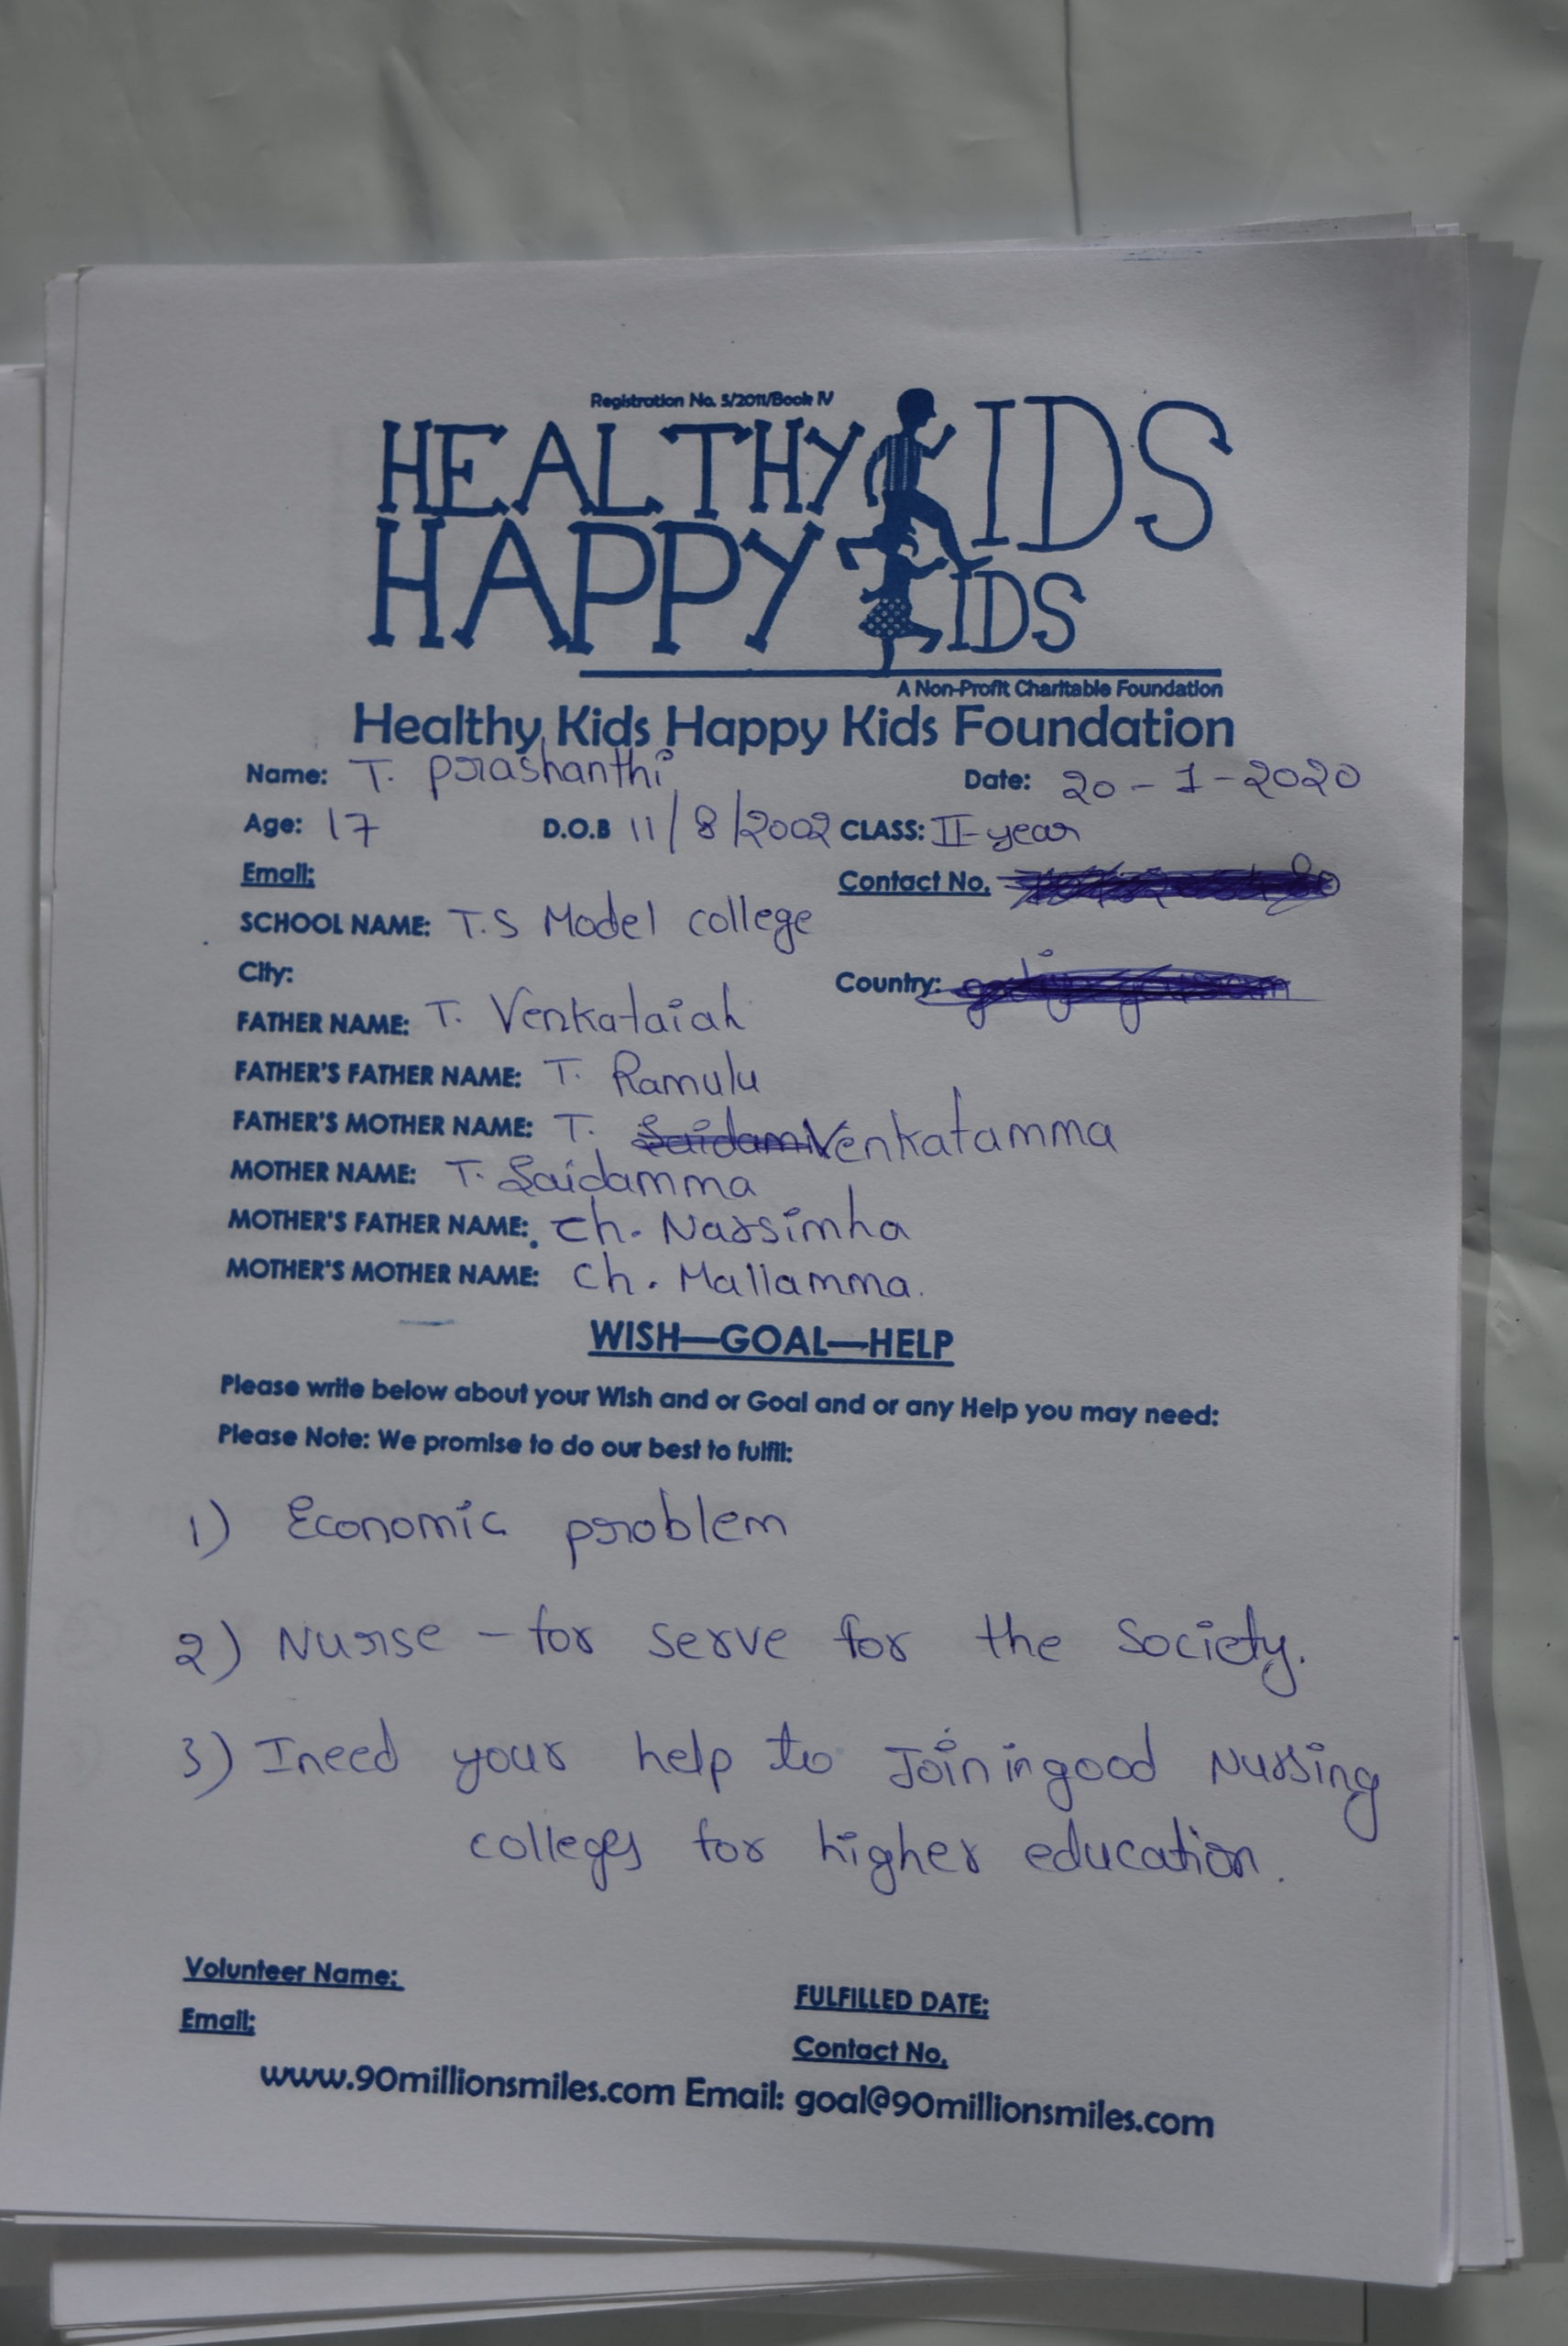 Registration No. 5/2011/Book IV
HEALTHY KIDS
HAPPY KIDS
A Non-Profit Charitable Foundation
Healthy Kids Happy Kids Foundation
Name: T. prashanthi Date: 20-1-2020
Age: 17 D.O.B 11/8/2002 CLASS: II-year
Email: Contact No.
SCHOOL NAME: T.S Model college
City: Country:
FATHER NAME: T. Venkataiah
FATHER'S FATHER NAME: T. Ramulu
FATHER'S MOTHER NAME: T. Saidam Venkatamma
MOTHER NAME: T. Saidamma
MOTHER'S FATHER NAME: Ch. Narsimha
MOTHER'S MOTHER NAME: Ch. Mallamma.
WISH—GOAL—HELP
Please write below about your Wish and or Goal and or any Help you may need:
Please Note: We promise to do our best to fulfil:
1) Economic problem
2) Nurse - for serve for the Society.
3) I need your help to Join in good Nursing
colleges for higher education.
Volunteer Name: FULFILLED DATE:
Email: Contact No.
www.90millionsmiles.com Email: goal@90millionsmiles.com